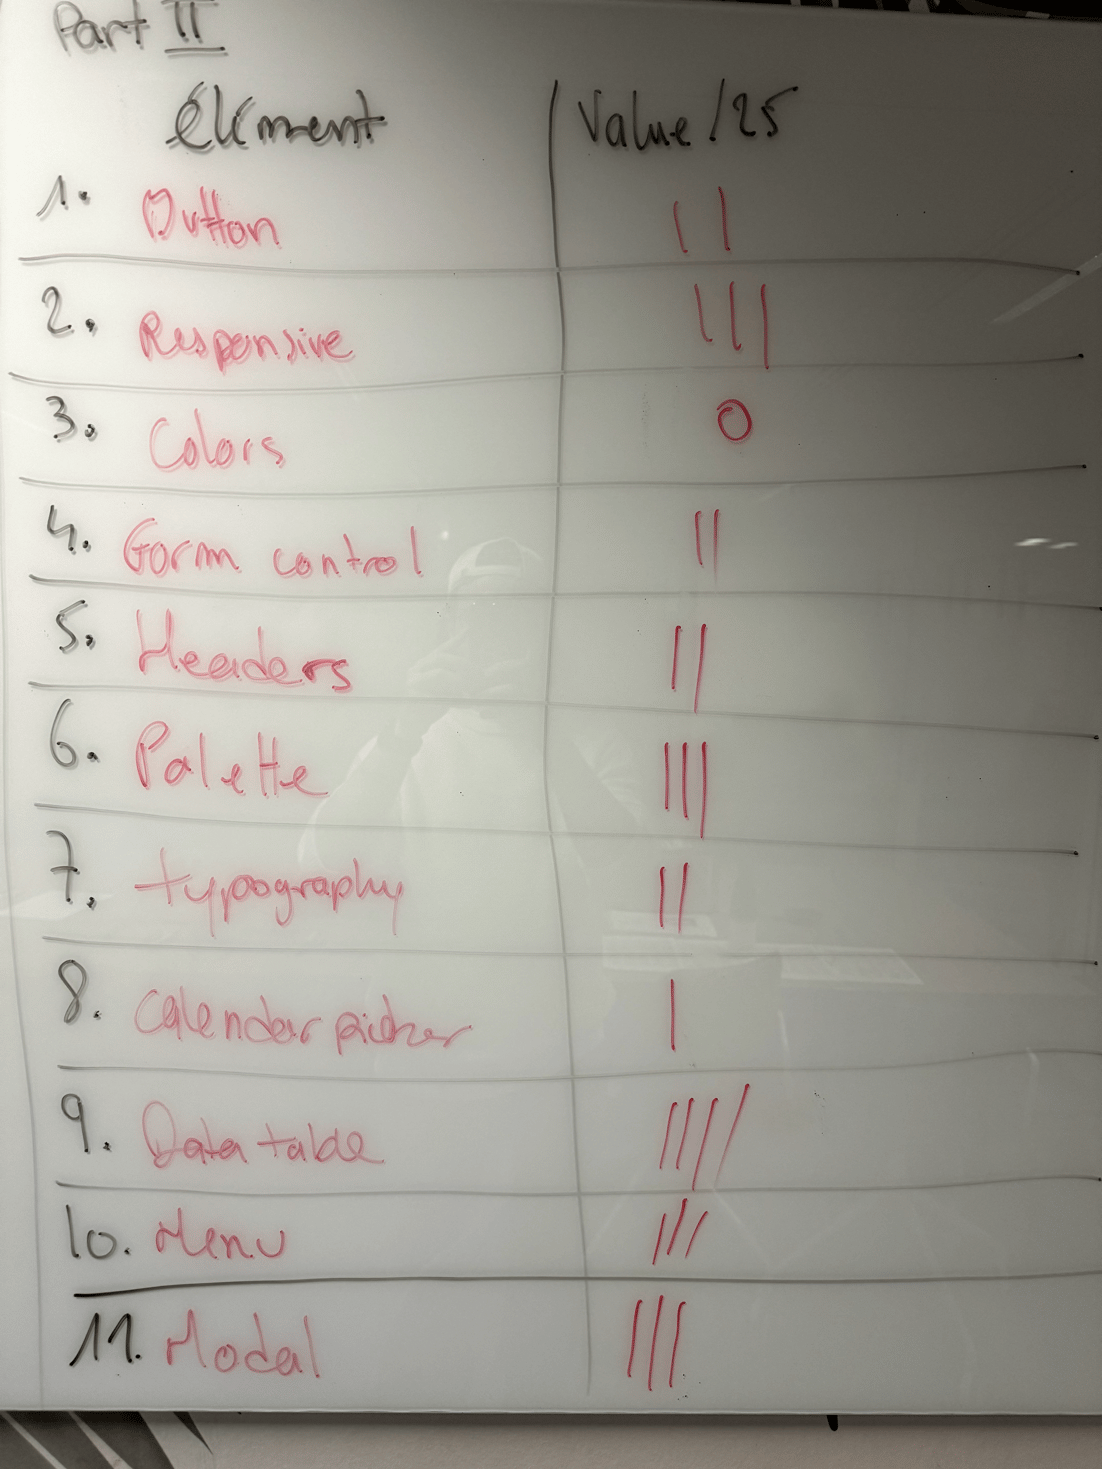 Part II
élément Value/25
1. Button II
2. Responsive III
3. Colors 0
4. Form control II
5. Headers II
6. Palette III
7. typography II
8. calendar picker I
9. Data table IIII
10. Menu III
11. Modal III